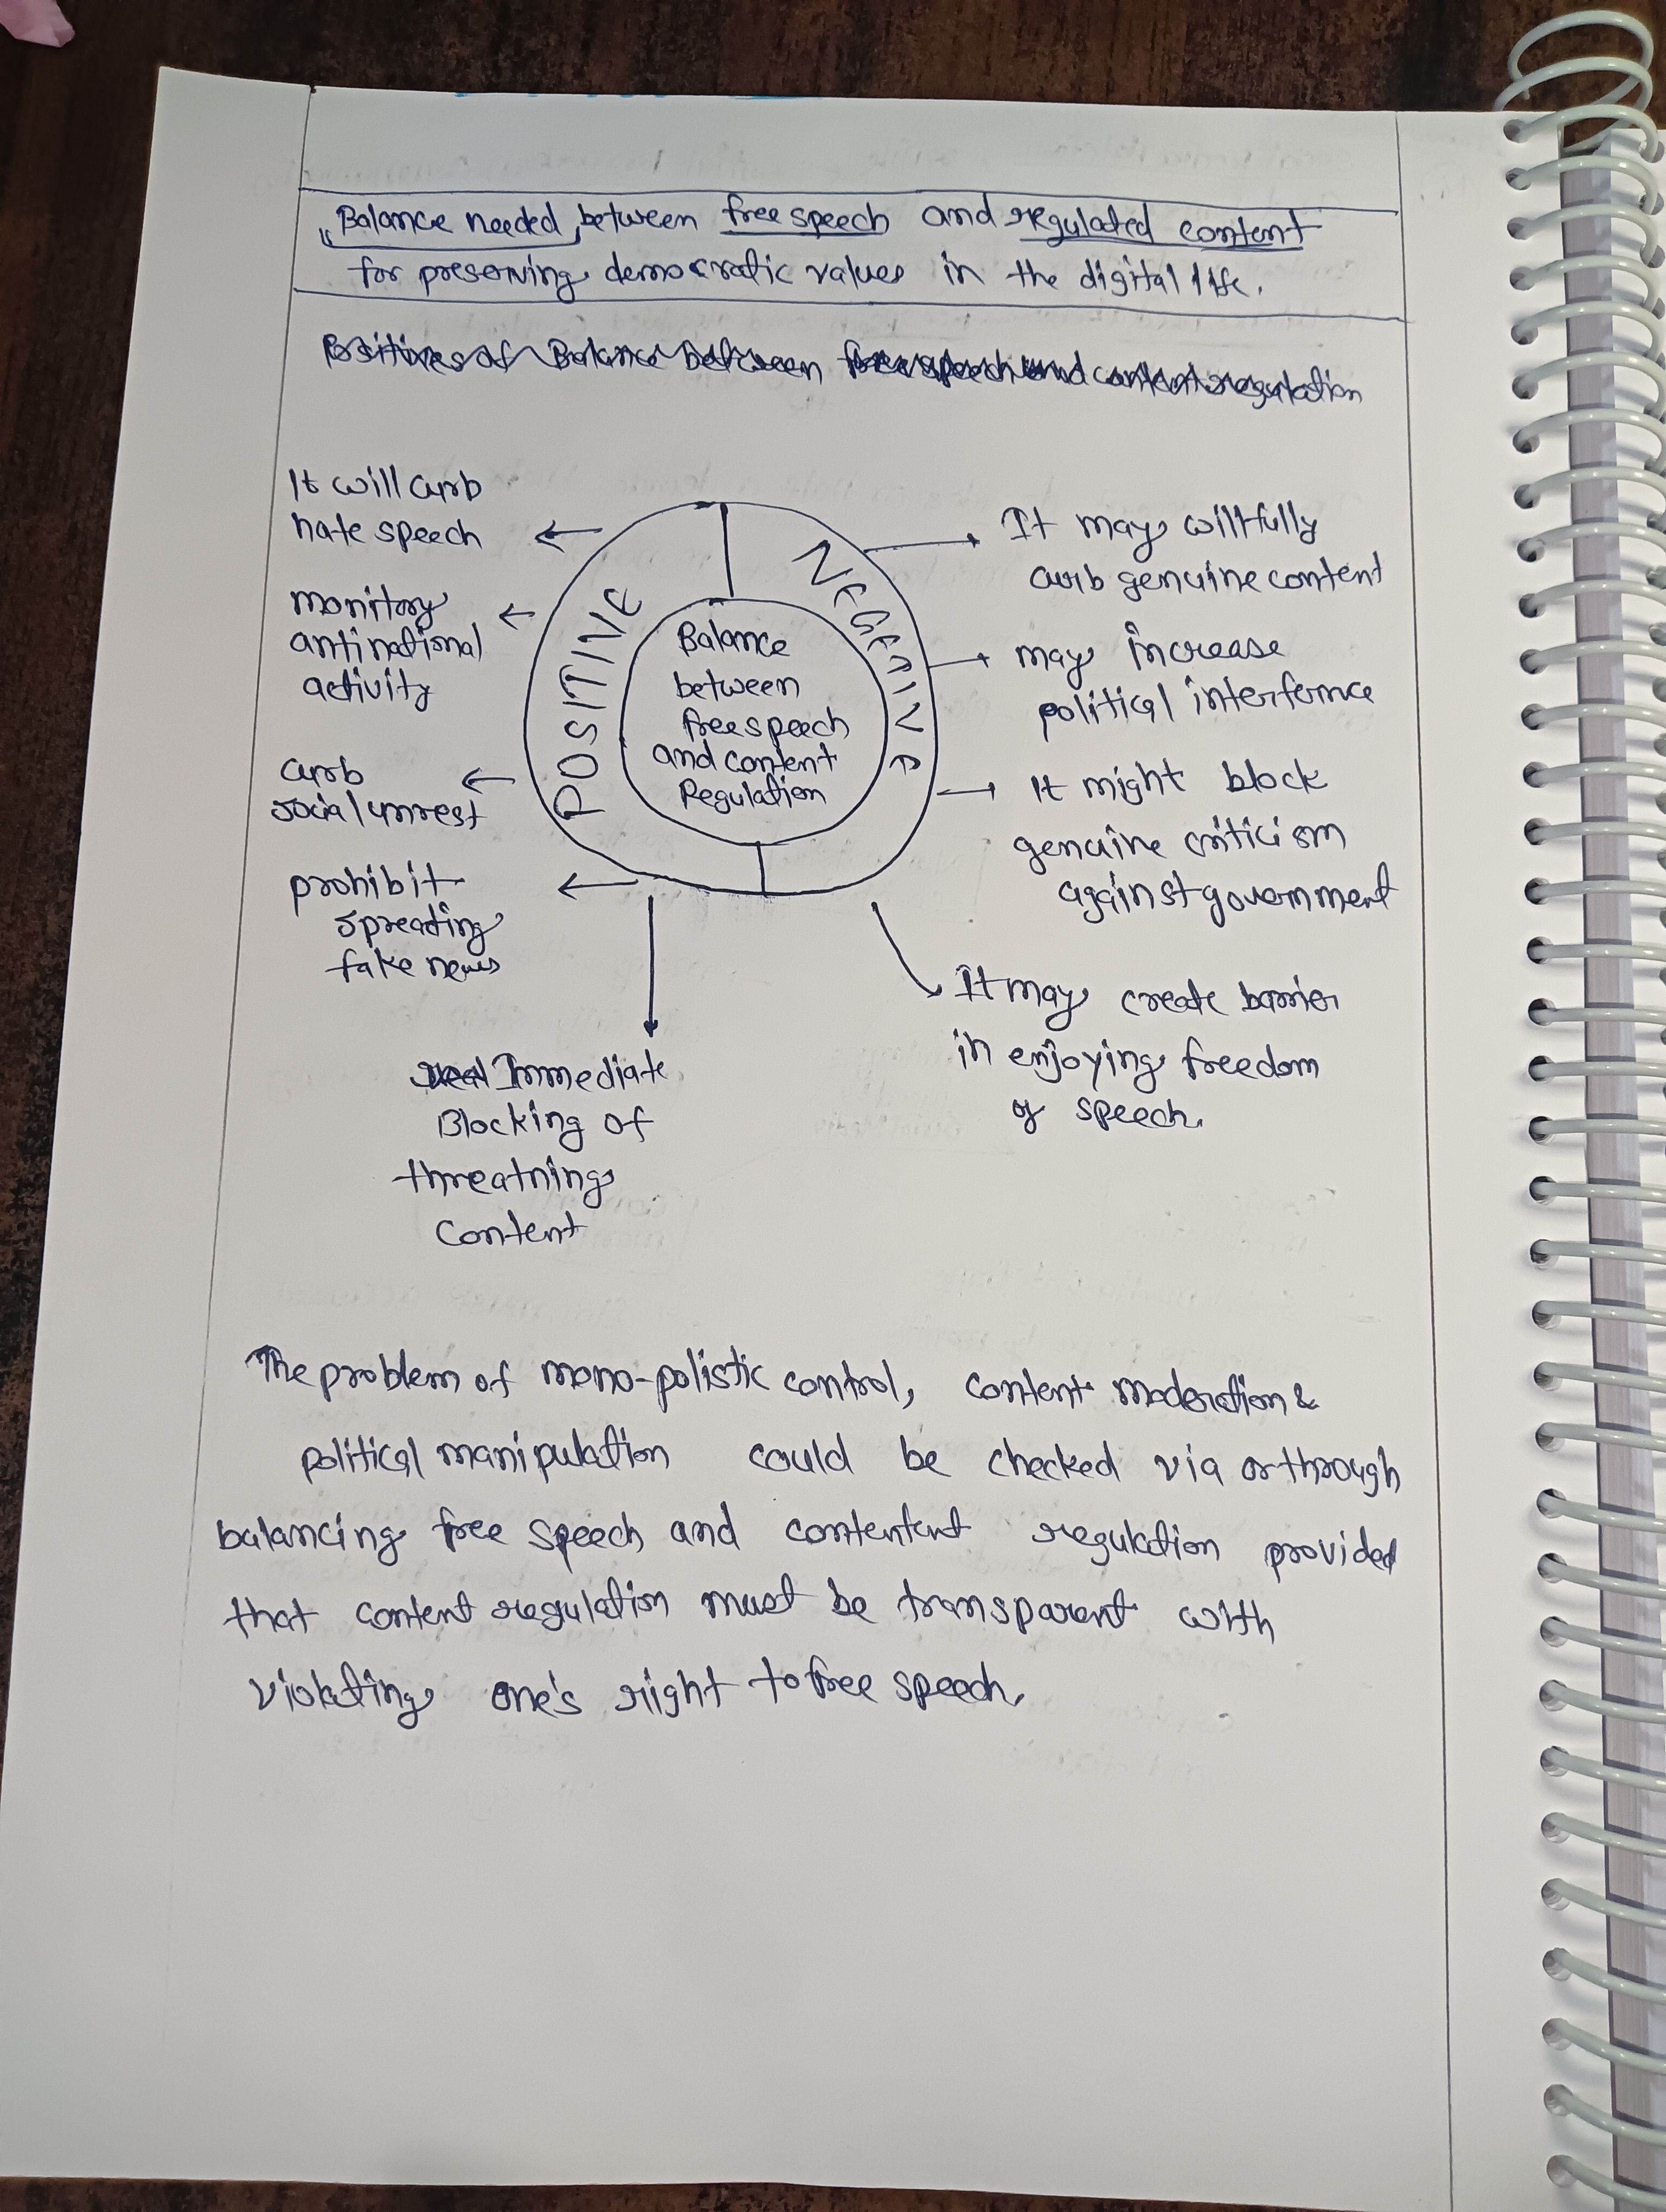 "Balance needed" between free speech and regulated content
for preserving democratic values in the digital life.
Positives of Balance between free speech and content regulation
It will curb
hate speech
monitory
antinational
activity
curb
social unrest
prohibit
spreading
fake news
Immediate
Blocking of
threatning
Content
POSITIVE
NEGETIVE
Balance
between
free speech
and content
Regulation
It may willfully
curb genuine content
may increase
political interfernce
It might block
genuine criticism
against government
It may create barrier
in enjoying freedom
of speech.
The problem of mono-polistic control, content moderation &
political manipulation could be checked via or through
balancing free speech and contentent regulation provided
that content regulation must be transparent with
violating one's right to free speech.